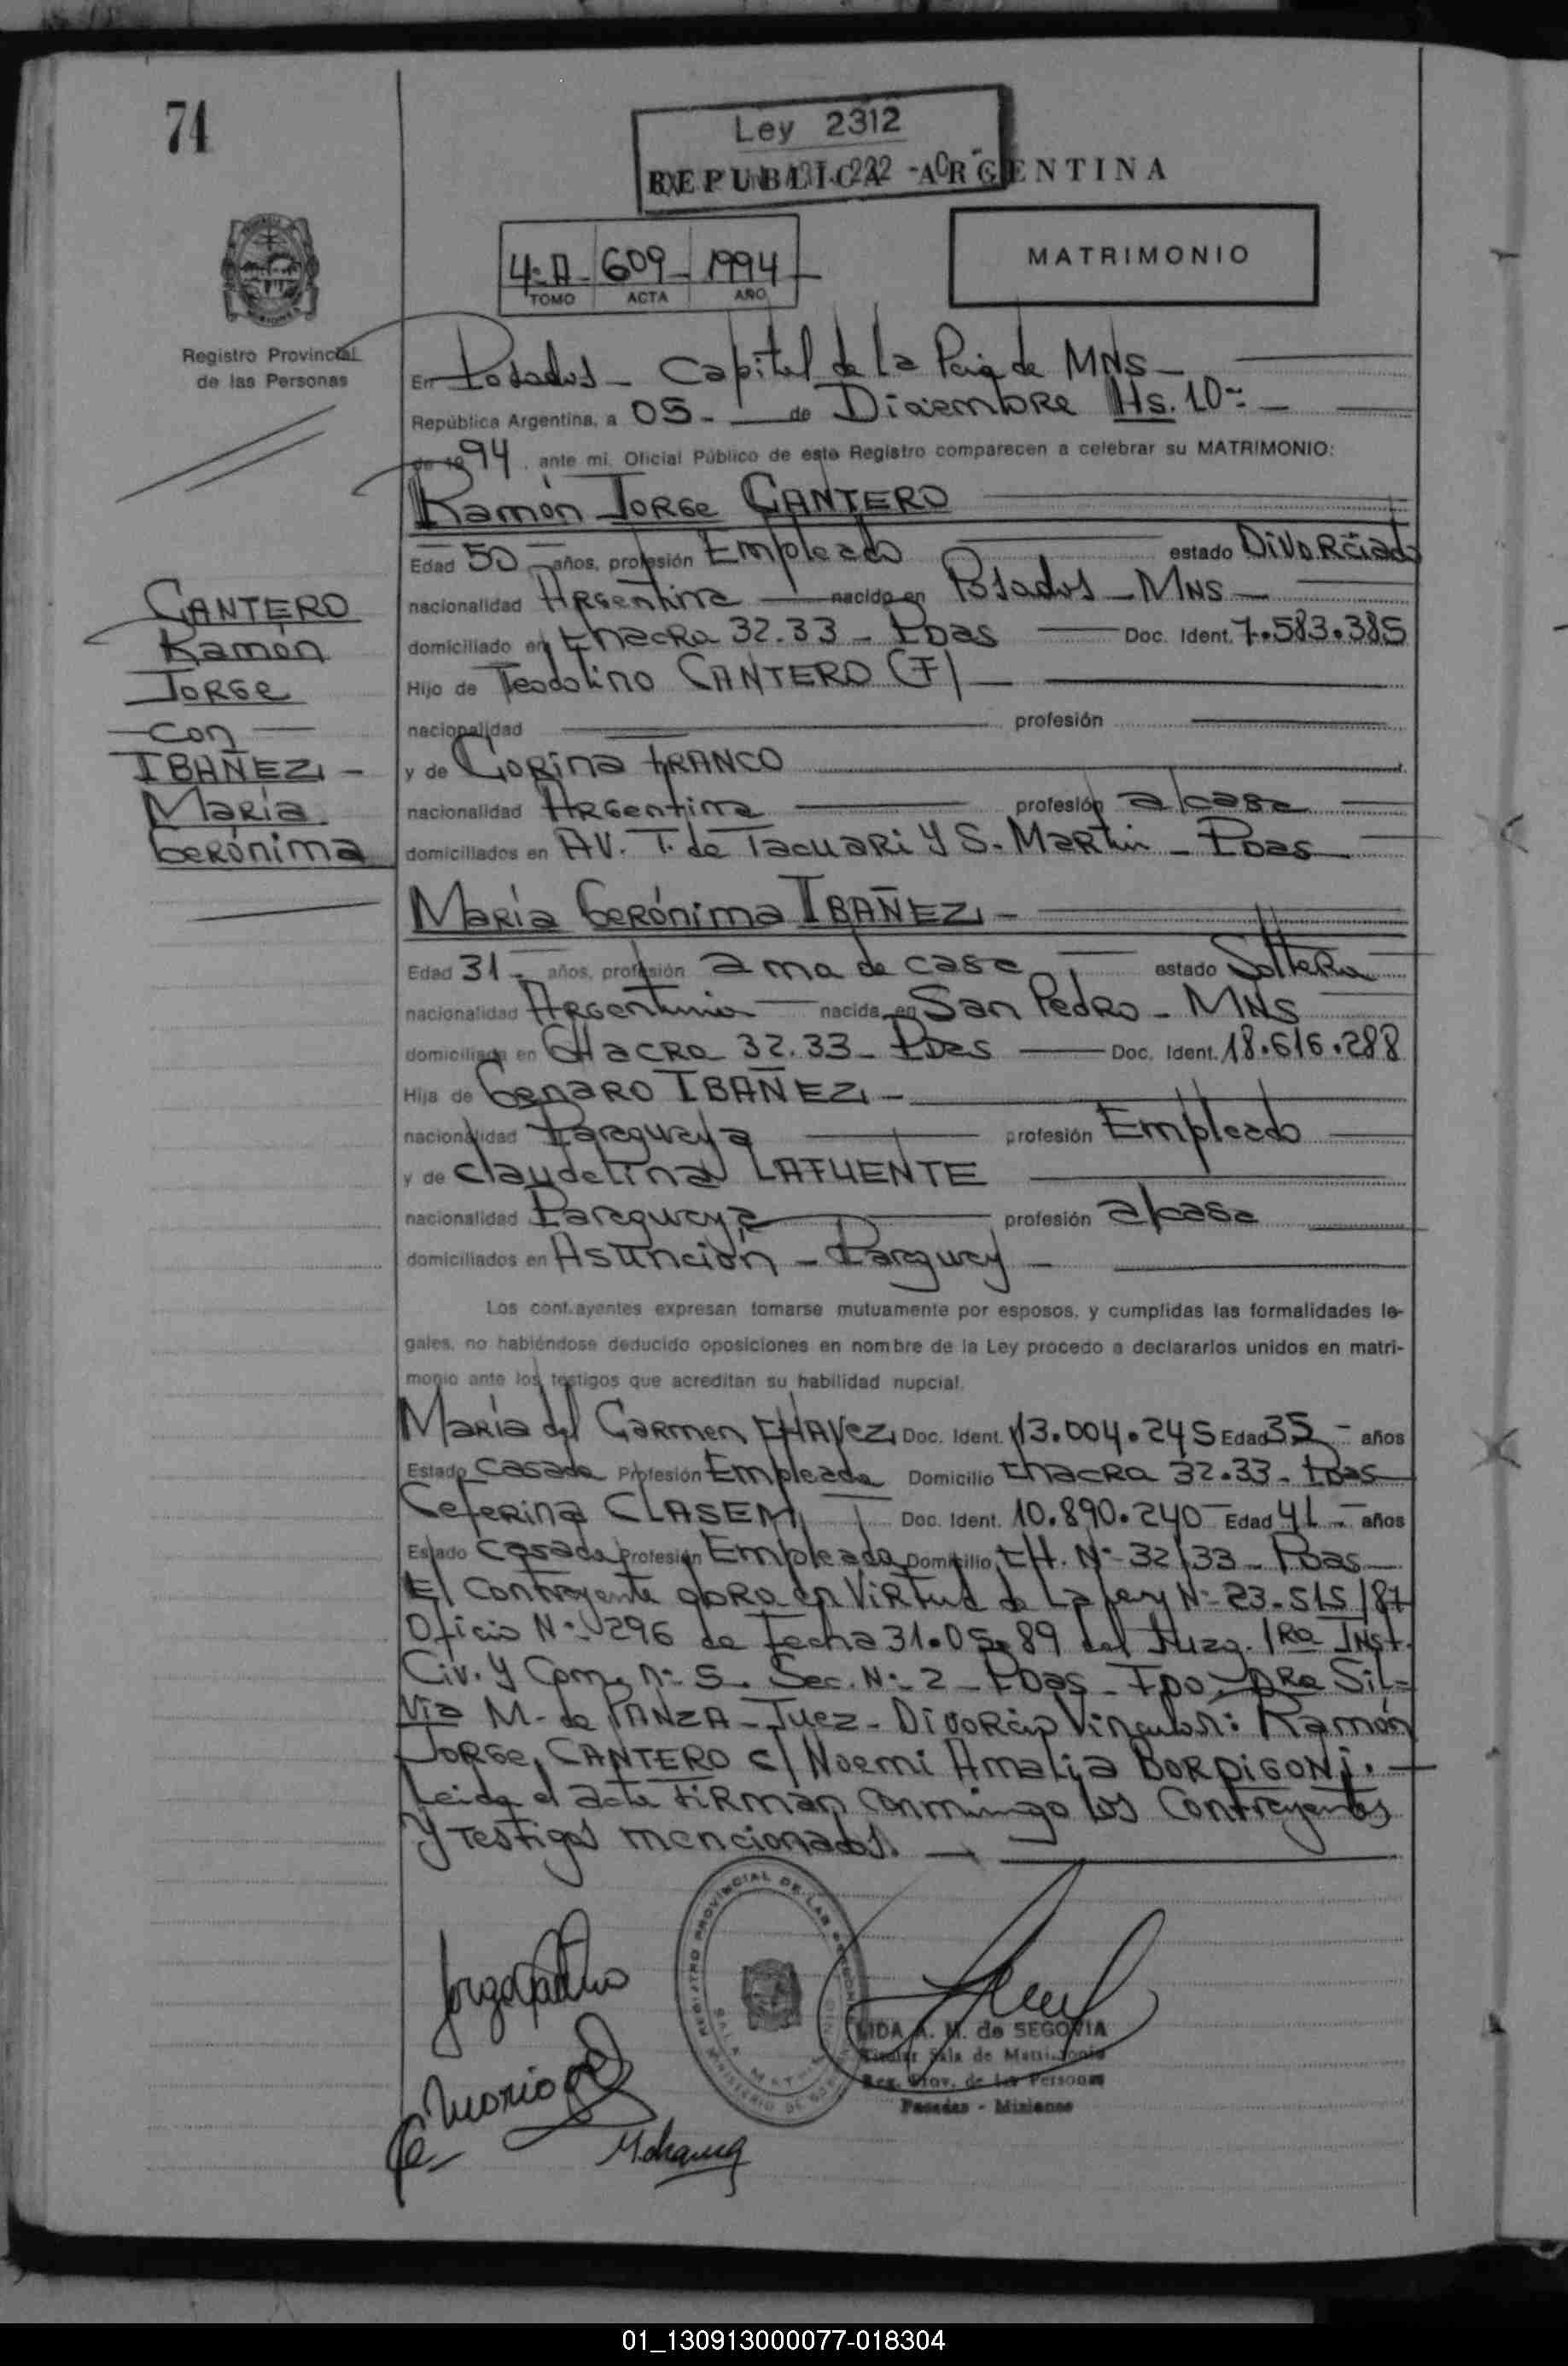 74
Ley 2312
REPUBLICA ARGENTINA
4: A - 609 - 1994
TOMO ACTA AÑO
MATRIMONIO
Registro Provincial
de las Personas
En Posadas - Capital de la Pcia de MNS -
República Argentina, a 05 - de Diciembre Hs. 10 -
de 1994, ante mi, Oficial Público de este Registro comparecen a celebrar su MATRIMONIO:
Ramón Jorge CANTERO
Edad 50 - años, profesión Empleado estado Divorciado
nacionalidad Argentina nacido en Posadas - MNS -
domiciliado en Chacra 32.33 - Pdas Doc. Ident. 7.583.385
Hijo de Teodolino CANTERO (F) -
nacionalidad profesión
y de Corina FRANCO
nacionalidad Argentina profesión a/casa
domiciliados en AV. T. de Tacuari y S. Martin - Pdas
CANTERO
Ramón
Jorge
-con-
IBAÑEZ, -
María
Gerónima
María Gerónima IBAÑEZ, -
Edad 31 - años, profesión ama de casa estado Soltera
nacionalidad Argentina nacida en San Pedro - MNS
domiciliada en CHacra 32.33 - Pdas Doc. Ident. 18.616.288
Hija de Genaro IBAÑEZ, -
nacionalidad Paraguaya profesión Empleado
y de Claudelina LAFUENTE
nacionalidad Paraguaya profesión a/casa
domiciliados en Asunción - Paraguay -
Los contrayentes expresan tomarse mutuamente por esposos, y cumplidas las formalidades le-
gales, no habiéndose deducido oposiciones en nombre de la Ley procedo a declararlos unidos en matri-
monio ante los testigos que acreditan su habilidad nupcial.
María del Carmen CHAVEZ, Doc. Ident. 13.004.245 Edad 35 - años
Estado Casada Profesión Empleada Domicilio Chacra 32.33 - Pdas
Ceferina CLASEM, Doc. Ident. 10.890.240 - Edad 41 - años
Estado Casada Profesión Empleada Domicilio CH. Nº 32/33 - Pdas -
El contrayente obra en virtud de la Ley Nº 23.515/87
Oficio Nº 296 de fecha 31.05.89 del Juzg. 1Ra Inst.
Civ. y Com. nº 5. Sec. Nº 2 - Pdas - Fdo: DRa Sil-
via M. de PANZA - Juez - Divorcio Vincular: Ramón
Jorge, CANTERO c/ Noemi Amalia BORDIGONI. -
Leida el acta firman conmingo los contrayentes
y testigos mencionados. -
REGISTRO PROVINCIAL DE LAS PERSONAS
LIDA A. M. de SEGOVIA
Titular Sala de Matrimonio
Reg. Prov. de las Personas
Posadas - Misiones
01_130913000077-018304